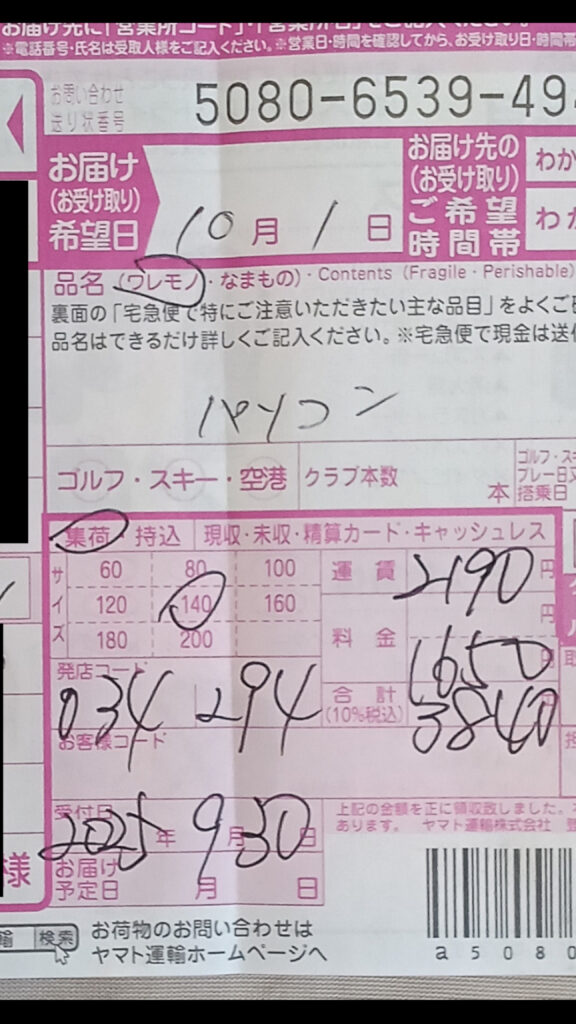 お届け先に「営業所コード」・「営業所名」をご記入ください。
※電話番号・氏名は受取人様をご記入ください。※営業日・時間を確認してから、お受け取り日・時間帯
お問い合わせ
送り状番号
5080-6539-494
お届け
(お受け取り)
希望日
10月1日
お届け先の
(お受け取り)
ご希望
時間帯
わか
わか
品名(ワレモノ・なまもの)・Contents (Fragile・Perishable)
裏面の「宅急便で特にご注意いただきたい主な品目」をよくご
品名はできるだけ詳しくご記入ください。※宅急便で現金は送
パソコン
ゴルフ・スキー・空港
クラブ本数
本
ゴルフ・スキ
プレー日又
搭乗日
集荷・持込
現収・未収・精算カード・キャッシュレス
サイズ
60 80 100
120 140 160
180 200
運賃 2190 円
料金 1650 円
合計
(10%税込)
3840 円
発店コード
034 294
お客様コード
受付日
2025年9月30日
お届け
予定日
月 日
上記の金額を正に領収致しました。
あります。 ヤマト運輸株式会社
様
輸 検索
お荷物のお問い合わせは
ヤマト運輸ホームページへ
a5080